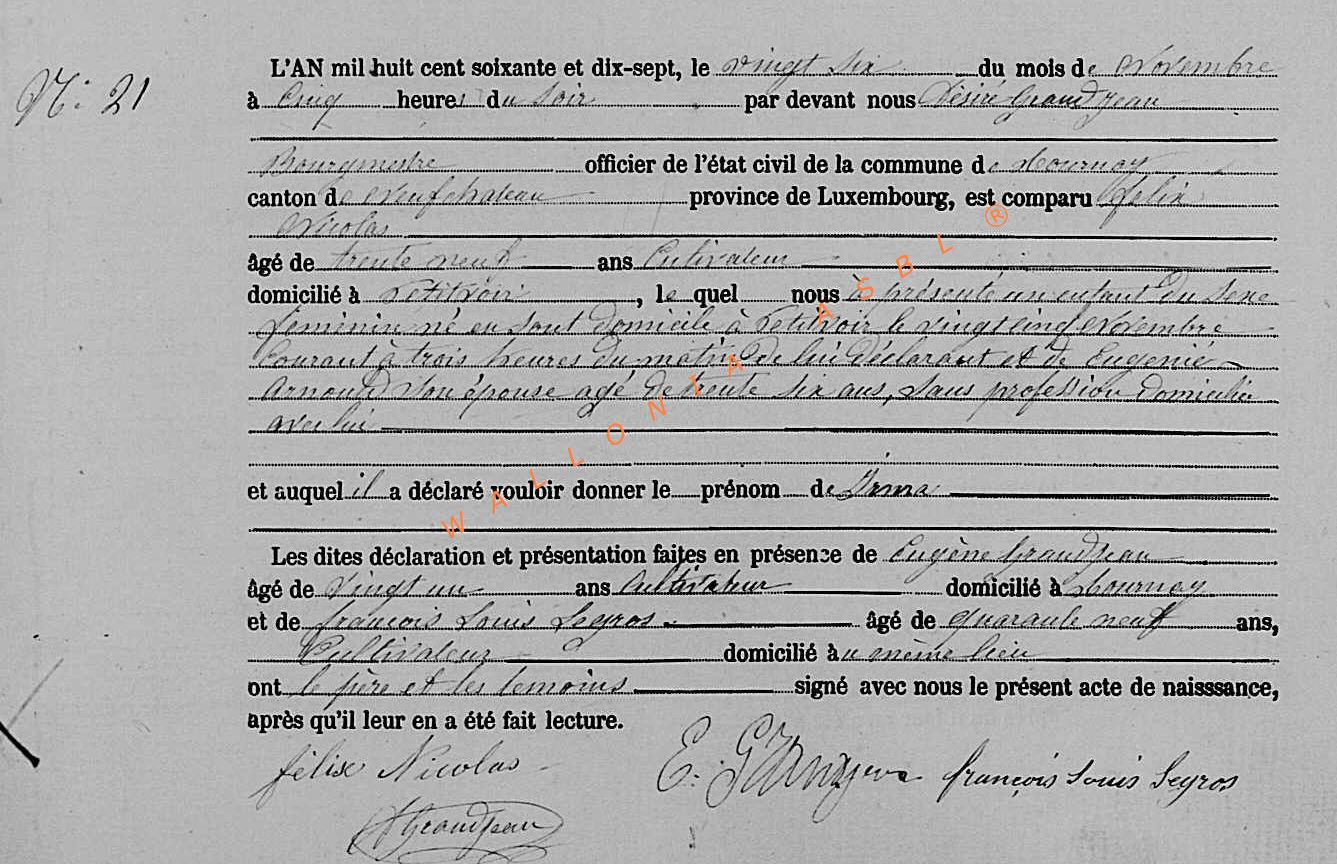 N: 21
L'AN mil huit cent soixante et dix-sept, le vingt six du mois de Novembre
à Cinq heures du soir par devant nous Désiré Grandjean
Bourgmestre officier de l'état civil de la commune de Tournay
canton de Neufchateau province de Luxembourg, est comparu félix
Nicolas
âgé de trente neuf ans Cultivateur
domicilié à Petitvoir, le quel nous à présenté un enfant du sexe
féminin né en sont domicile à Petitvoir le vingt cinq Novembre
Courant à trois heures du matin de lui déclarant et de Eugenie
Arnould son épouse agé de trente six ans, sans profession domicilié
avec lui
et auquel il a déclaré vouloir donner le prénom de Irma
Les dites déclaration et présentation faites en présence de Eugène Grandjean
âgé de vingt un ans Cultivateur domicilié à Tournay
et de françois Louis Legros âgé de quarante neuf ans,
Cultivateur domicilié au même lieu
ont le père et les temoins signé avec nous le présent acte de naisssance,
après qu'il leur en a été fait lecture.
félix Nicolas E. Grandjean françois Louis Legros
D Grandjean
WALLONIA ASBL ®